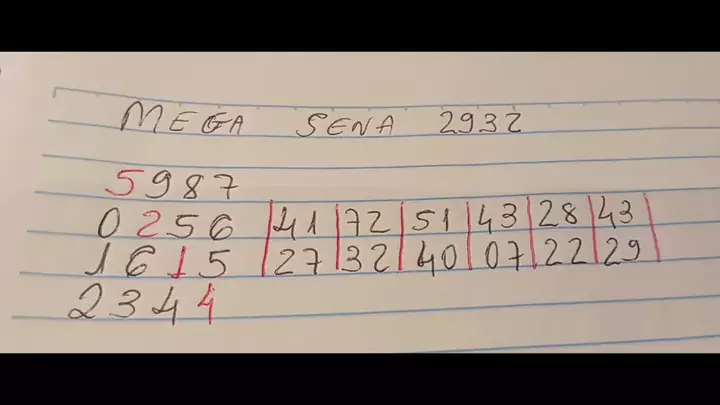 MEGA SENA 2932
5987
0256 |41|72|51|43|28|43|
1615 |27|32|40|07|22|29|
2344